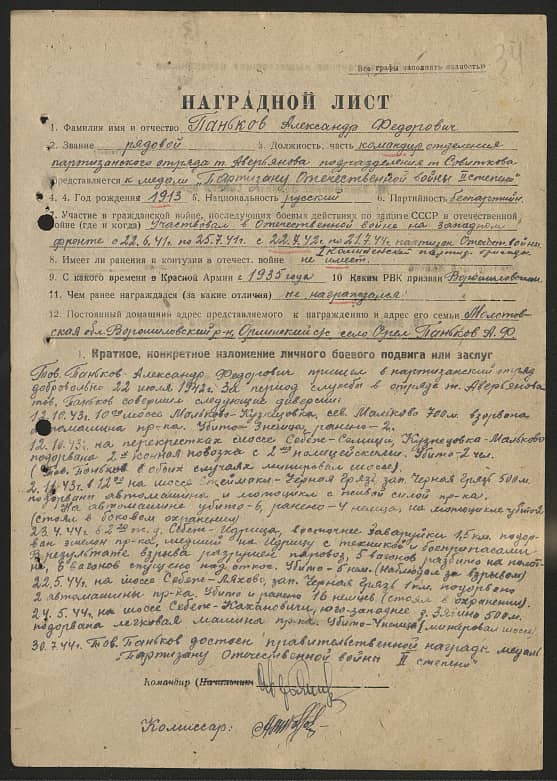 34
Все графы заполнять полностью
НАГРАДНОЙ ЛИСТ
1. Фамилия имя и отчество Паньков Александр Федорович
2. Звание рядовой 3. Должность, часть командир отделения
партизанского отряда т. Аверьянова подразделения т.
представляется к медали „Партизану Отечественной войны II степени"
4. 4. Год рождения 1913 5. Национальность русский 6. Партийность беспартийн.
7. Участие в гражданской войне, последующих боевых действиях по защите СССР и отечественной
войне (где и когда) Участвовал в Отечественной войне на западном
фронте с 22.6.41г. по 25.7.41г. с 22.7.42г. по 21.7.44 партизан Отечеств войны
1 Калининской партиз. бригады.
8. Имеет ли ранения и контузии в отечест. войне не имеет.
9. С какого времени в Красной Армии с 1935 года 10 Каким РВК призван Ворошиловским
11. Чем ранее награждался (за какие отличия) не награждался
12. Постоянный домашний адрес представляемого к награждению и адрес его семьи Молотов-
ская обл. Ворошиловский р-н, с/с село Орел Паньков А.Ф
1. Краткое, конкретное изложение личного боевого подвига или заслуг
Тов. Паньков Александр Федорович пришел в партизанский отряд
добровольно 22 июля 1942г. За период службы в отряде т. Аверьянова
тов. Паньков совершил следующие диверсии:
12.10.43г. на шоссе Малково-Кузнецовка, сев. Малково 700м. взорвана
автомашина пр-ка. Убито-3 немца, ранено-2.
12.10.43г. на перекрестках шоссе Себеж- Кузнецовка-Мальково
подорвана 2х конная повозка с 2мя полицейскими. Убито-2 чел.
(Тов. Паньков в обоих случаях минировал шоссе).
2.11.43г. в 12 на шоссе Черная грязь зап. Черная грязь 500м.
подорваны автомашина и мотоцикл с живой силой пр-ка.
На автомашине убито-6, ранено-4 немца, на мотоцикле убито
(стоял в боковом охранении)
23.4.44г. в Себеж-Идрица, восточнее Заваруйки 1,5 км. подор-
ван эшелон пр-ка, шедший на Идрицу с техникой и боеприпасами
В результате взрыва разрушен паровоз, 5 вагонов разбито на полот-
не, 8 вагонов спущено под откос. Убито-5 нем. (наблюдал за взрывом)
22.5.44г. на шоссе Себеж-Ляхово, зап. Черная грязь 1км. подорвано
2 автомашины пр-ка. Убито и ранено 16 немцев (стоял в охранении).
24.5.44г. на шоссе Себеж-Кахановичи, юго-западнее д. 500м.
подорвана легковая машина пр-ка. Убито-4 немца (минировал шоссе)
30.7.44г. Тов. Паньков достоин правительственной награды медаль
„Партизану Отечественной войны II степени"
Командир (Начальник)
Комиссар: